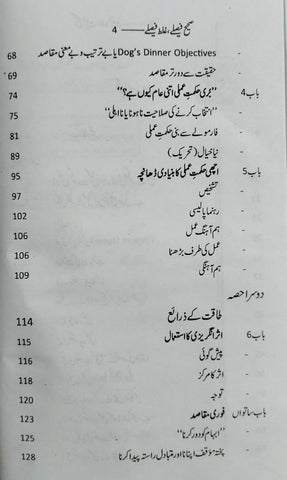 صحیح فیصلے، غلط فیصلے 4
- Dog's Dinner Objectives یا بے ترتیب و بے معنی مقاصد 68
- حقیقت سے دور تر مقاصد 69
باب 4 "بُری حکمتِ عملی اتنی عام کیوں ہے؟" 74
- "انتخاب کرنے کی صلاحیت نا ہونا یا نااہلی" 75
- فارمولے سے بنی حکمتِ عملی 81
- نیا خیال (تحریک) 89
باب 5 اچھی حکمتِ عملی کا بنیادی ڈھانچہ 95
- تشخیص 97
- رہنما پالیسی 102
- ہم آہنگ عمل 106
- عمل کی طرف بڑھنا 106
- ہم آہنگی 109
دوسرا حصہ
طاقت کے ذرائع 114
باب 6 اثر انگریزی کا استعمال 115
- پیش گوئی 116
- اثر کا مرکز 118
- توجہ 120
باب ساتواں فوری مقاصد 123
- "ابہام کو دور کرنا" 125
- پختہ مؤقف اپنانا اور متبادل راستہ پیدا کرنا 128